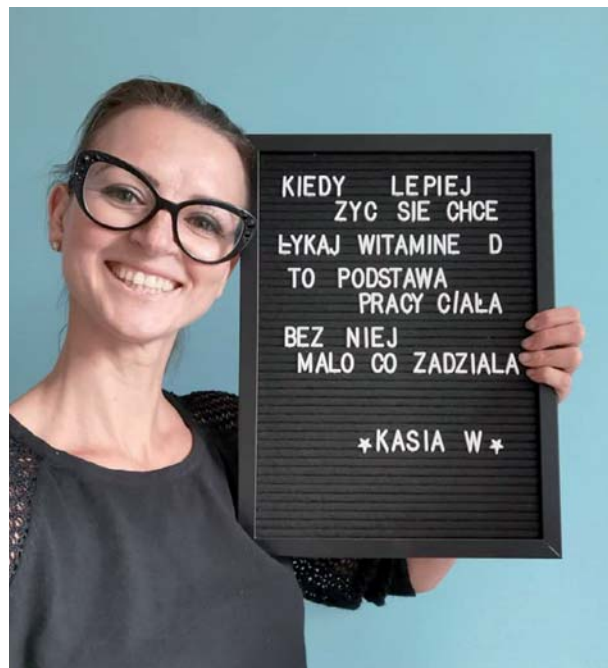 KIEDY LEPIEJ
ZYC SIE CHCE
ŁYKAJ WITAMINE D
TO PODSTAWA
PRACY C/AŁA
BEZ NIEJ
MALO CO ZADZIALA
*KASIA W*